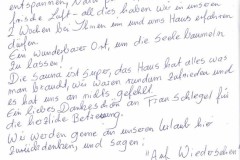 entspannen, Na
frische Luft - all das haben wir in unseren
2 Wochen bei Ihnen im und ums Haus erfahren
dürfen.
Ein wunderbarer Ort, um die Seele baumeln
zu lassen!
Die Sauna ist super, das Haus hat alles was
man braucht, wir waren rundum zufrieden und
es hat uns an nichts gefehlt
Ein liebes Dankeschön an Frau Schlegel für
die herzliche Betreuung.
Wir werden gerne an unseren Urlaub hier
zurückdenken, und sagen:
"Auf Wiedersehen